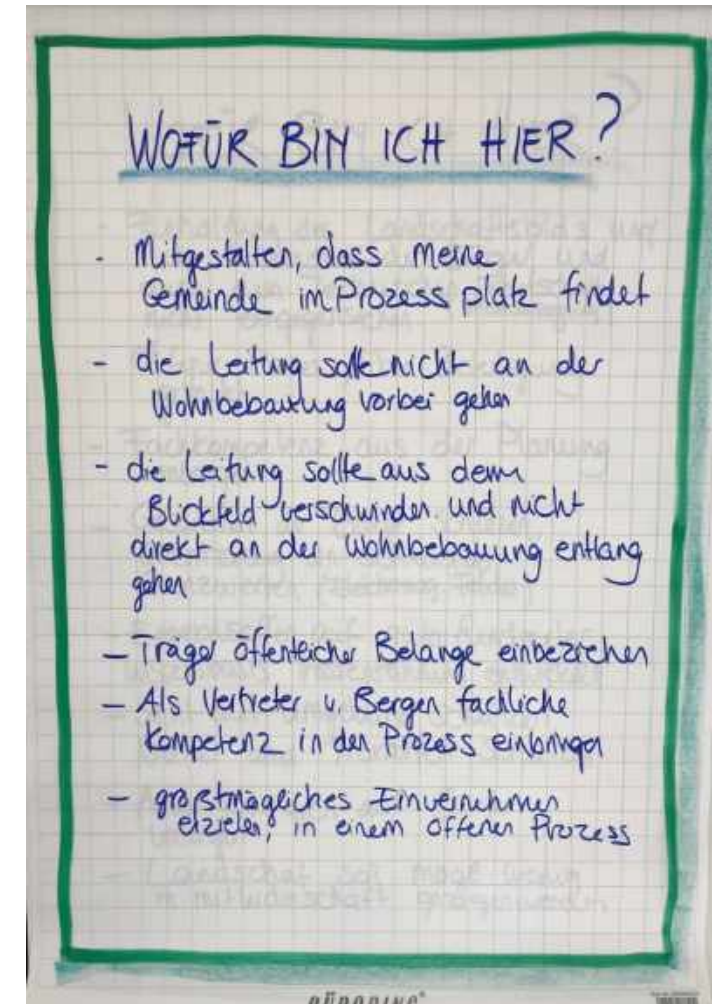 WOFÜR BIN ICH HIER?
- Mitgestalten, dass meine
Gemeinde im Prozess platz findet
- die Leitung sollte nicht an der
Wohnbebauung vorbei gehen
- die Leitung sollte aus dem
Blickfeld verschwinden und nicht
direkt an der Wohnbebauung entlang
gehen
- Träger öffentlicher Belange einbeziehen
- Als Vertreter v. Bergen fachliche
Kompetenz in den Prozess einbringen
- größtmögliches Einvernehmen
erzielen, in einem offenen Prozess